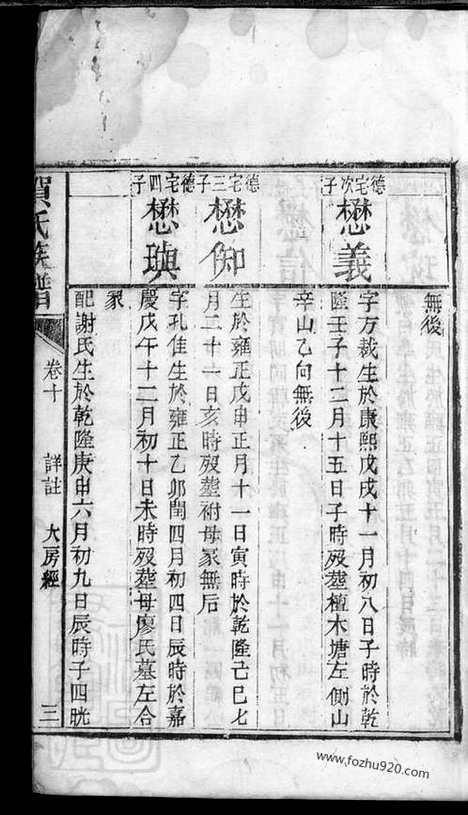 無後
德宅次子
懋義
字方裁生於康熙戊戌十一月初八日子時於乾
隆壬子十二月十五日子時殁塟植木塘左側山
辛山乙向無後
德宅三子
懋
生於雍正戊申正月十一日寅時於乾隆己巳七
月二十一日亥時殁塟祔母冢無后
德宅四子
懋璵
字孔佳生於雍正乙卯閏四月初四日辰時於嘉
慶戊午十二月初十日未時殁塟母廖氏墓左合
冢
配謝氏生於乾隆庚申六月初九日辰時子四晄
賀氏族譜
卷十
詳註
大房經
三
www.fozhu920.com